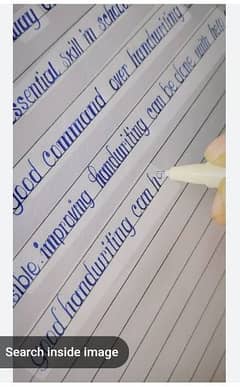 way
essential skill in school
good command over handwriting
sible. improving handwriting can be done with help
Good handwriting can he
Search inside image